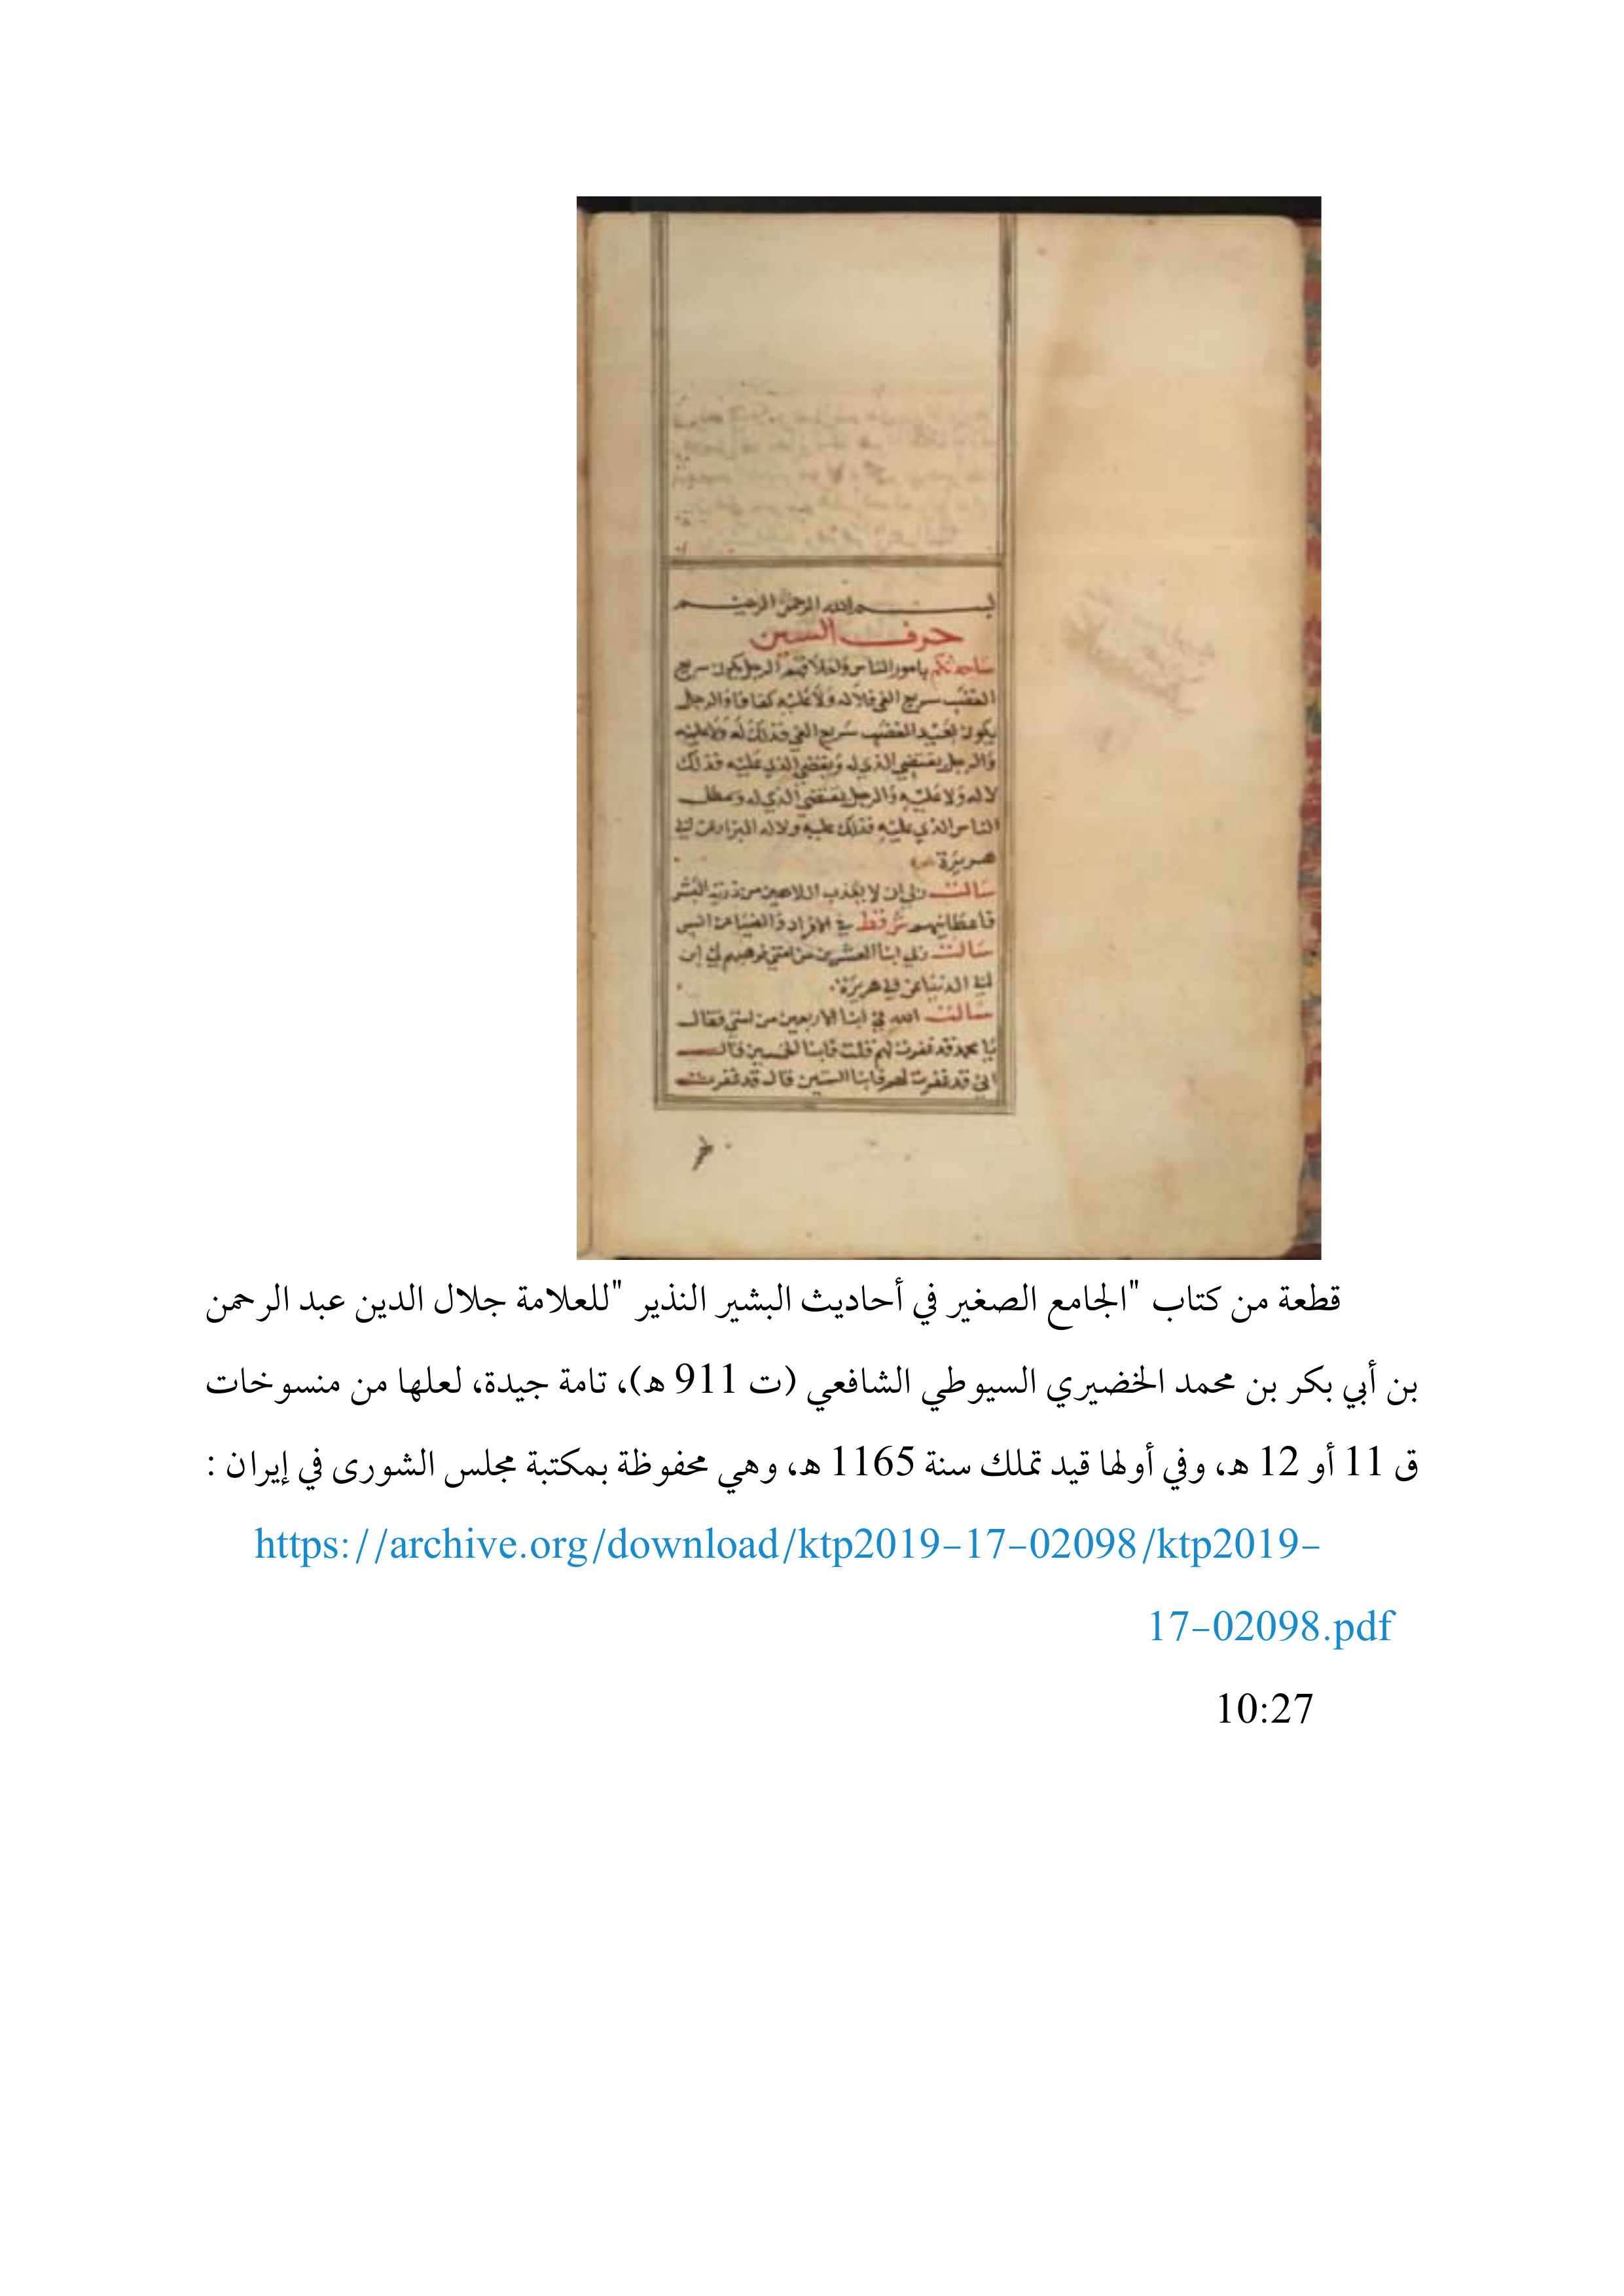 بسم الله الرحمن الرحيم
حرف السين
ساحدثكم بامور الناس واخلاقهم الرجل يكون سريع
الغضب سريع الفي فلا له ولا عليه كفافا والرجل
يكون بعيد الغضب سريع الفي فذلك له ولا عليه
والرجل يقتضي الذي له ويقضي الذي عليه فذلك
لا له ولا عليه والرجل يقتضي الذي له ويمطل
الناس الذي عليه فذلك عليه ولا له البزار عن ابي
هريرة
سالت ربي ان لا يعذب اللاهين من ذرية البشر
فاعطانيهم ش قط في الافراد والضيا عن انس
سالت ربي ابنا العشرين من امتي فوهبهم لي ابن
ابي الدنيا عن ابي هريرة
سالت الله في ابنا الاربعين من امتي فقال
يا محمد قد غفرت لهم قلت فابنا الخمسين قال
اني قد غفرت لهم فابنا الستين قال قد غفرت
قطعة من كتاب "الجامع الصغير في أحاديث البشير النذير "للعلامة جلال الدين عبد الرحمن
بن أبي بكر بن محمد الخضيري السيوطي الشافعي (ت 911 هـ)، تامة جيدة، لعلها من منسوخات
ق 11 أو 12 هـ، وفي أولها قيد تملك سنة 1165 هـ، وهي محفوظة بمكتبة مجلس الشورى في إيران :
https://archive.org/download/ktp2019-17-02098/ktp2019-
17-02098.pdf
10:27